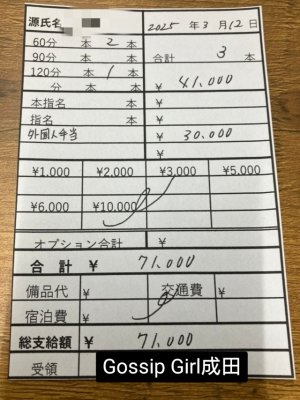 源氏名
2025 年 3 月 12 日
60分 本 2 本
90分 本 本
合計 3 本
120分 本 1 本
分 本 本
¥ 41,000
本指名 ¥
指名 ¥
外国人手当 ¥ 30,000
¥
¥1,000 ¥2,000 ¥3,000 ¥5,000
¥6,000 ¥10,000
オプション合計 ¥
合計 ¥ 71,000
備品代 ¥ 交通費 ¥
宿泊費 ¥
総支給額 ¥ 71,000
受領
Gossip Girl成田